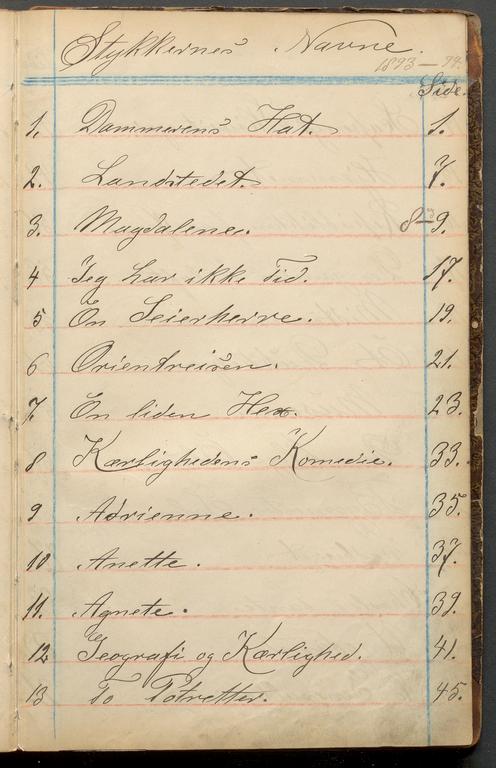 Stykkernes Navne.
1893–94.
Side.
1. Dommerens Hat. 1.
2. Landstedet. 7.
3. Magdalene. 8–9.
4 Jeg har ikke Tid. 17.
5 En Seierherre. 19.
6 Orientreisen. 21.
7. En liden Hex. 23.
8 Kærlighedens Komedie. 33.
9 Adrienne. 35.
10 Anette. 37.
11. Agnete. 39.
12 Geografi og Kærlighed. 41.
13 To Potretter. 45.